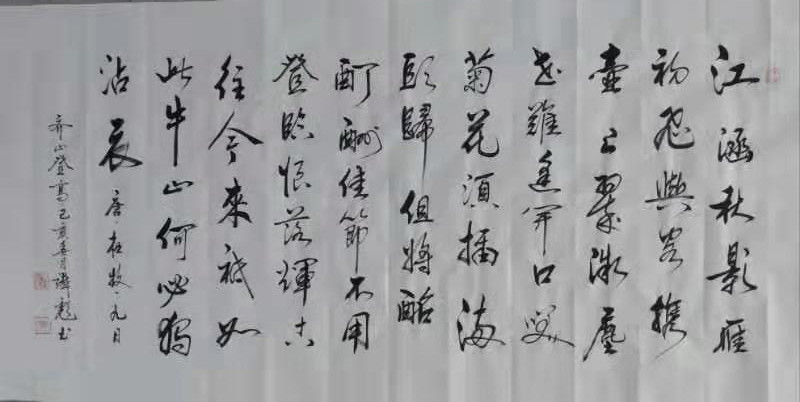 江涵秋影雁
初飛與客携
壺上翠微塵
世難逢開口笑
菊花須插滿
頭歸但將酩
酊酬佳節不用
登臨恨落輝古
往今來祇如
此牛山何必獨
沾衣 唐杜牧九日
齐山登高己亥春月书